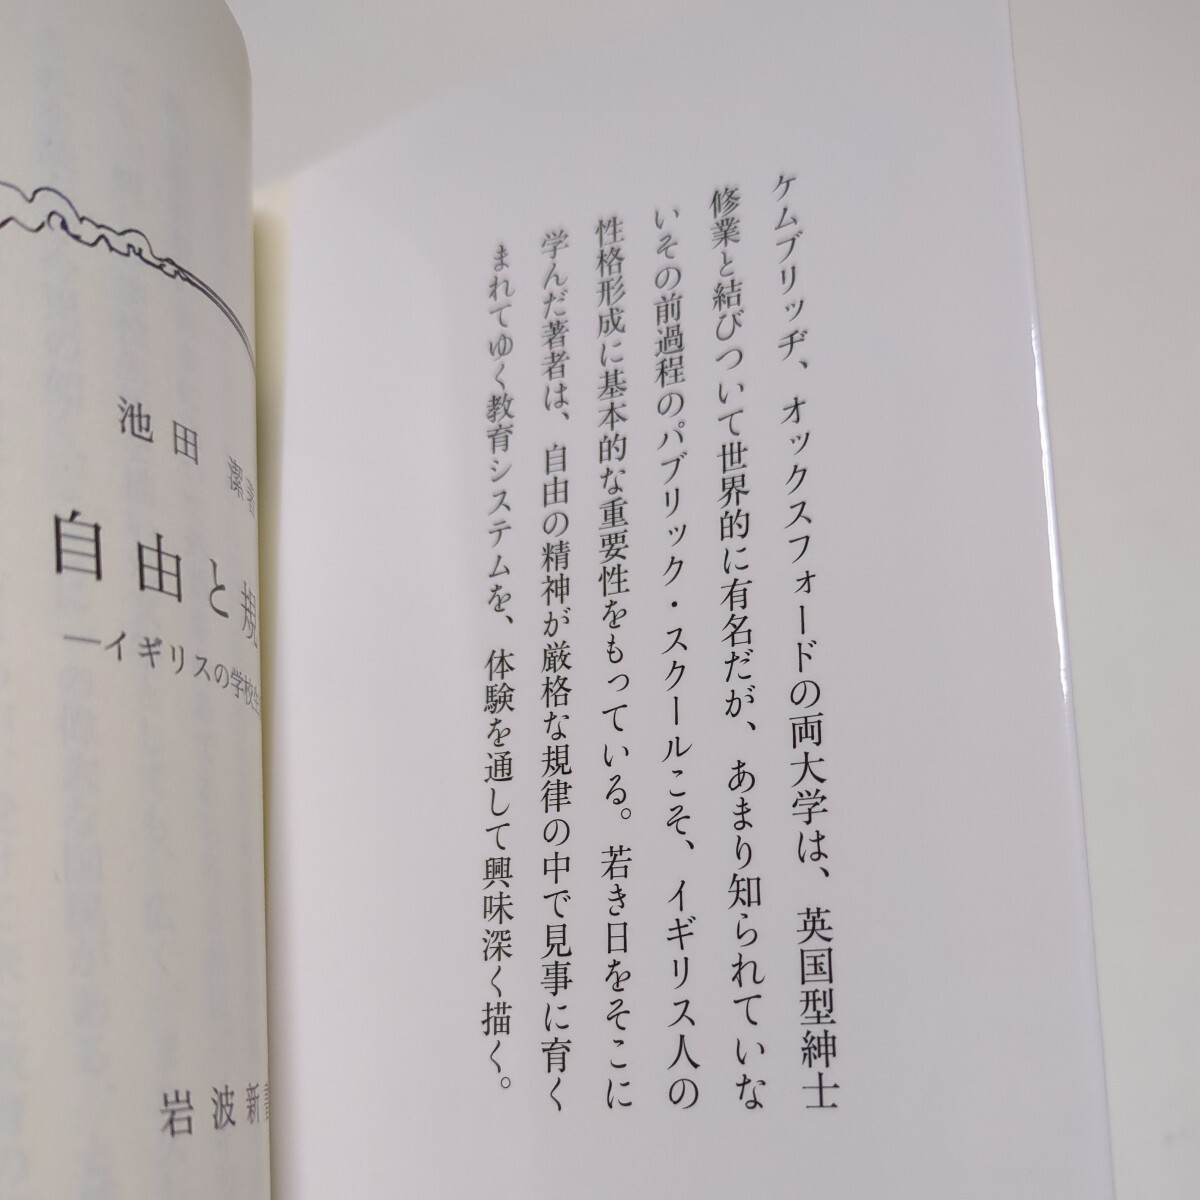 ケムブリッヂ、オックスフォードの両大学は、英国型紳士
修業と結びついて世界的に有名だが、あまり知られていな
いその前過程のパブリック・スクールこそ、イギリス人の
性格形成に基本的な重要性をもっている。若き日をそこに
学んだ著者は、自由の精神が厳格な規律の中で見事に育く
まれてゆく教育システムを、体験を通して興味深く描く。
池田 潔著
自由と規
―イギリスの学校生
岩波新書